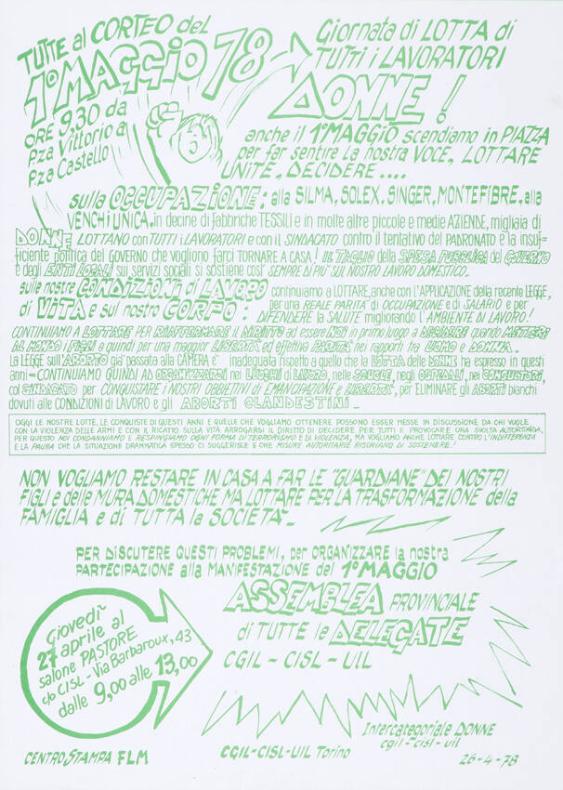 TUTTE al CORTEO del
1° MAGGIO 78
ORE 9,30 da
P.za Vittorio a
P.za Castello
Giornata di LOTTA di
TUTTI i LAVORATORI
DONNE!
anche il 1° MAGGIO scendiamo in PIAZZA
per far sentire la nostra VOCE, LOTTARE
UNITE, DECIDERE....
sulla OCCUPAZIONE: alla SILMA, SOLEX, SINGER, MONTEFIBRE, alla
VENCHIUNICA, in decine di fabbriche TESSILI e in molte altre piccole e medie AZIENDE, migliaia di
DONNE LOTTANO con TUTTI i LAVORATORI e con il SINDACATO contro il tentativo del PADRONATO e la insuf-
ficiente politica del GOVERNO che vogliono farci TORNARE A CASA! IL TAGLIO della SPESA PUBBLICA del GOVERNO
e degli ENTI LOCALI sui servizi sociali si sostiene così SEMPRE DI PIU' SUL NOSTRO LAVORO DOMESTICO.
sulle nostre CONDIZIONI di LAVORO
di VITA e sul nostro CORPO:
continuiamo a LOTTARE, anche con l'APPLICAZIONE della recente LEGGE,
per una REALE PARITA' di OCCUPAZIONE e di SALARIO e per
DIFENDERE la SALUTE migliorando l'AMBIENTE DI LAVORO!
CONTINUIAMO A LOTTARE PER RIAFFERMARE IL DIRITTO ad essere NOI in primo luogo a DECIDERE quando METTERE
AL MONDO i FIGLI e quindi per una maggior LIBERTA' ed effettiva PARITA' nei rapporti tra UOMO e DONNA.
La LEGGE sull'ABORTO già passata alla CAMERA è inadeguata rispetto a quello che la LOTTA delle DONNE ha espresso in questi
anni - CONTINUIAMO QUINDI AD ORGANIZZARCI nei LUOGHI di LAVORO, nelle SCUOLE, negli OSPEDALI, nei CONSULTORI,
col SINDACATO per CONQUISTARE i NOSTRI OBBIETTIVI DI EMANCIPAZIONE e LIBERTA', per ELIMINARE gli ABORTI bianchi
dovuti alle CONDIZIONI DI LAVORO e gli ABORTI CLANDESTINI -
OGGI LE NOSTRE LOTTE, LE CONQUISTE DI QUESTI ANNI E QUELLE CHE VOGLIAMO OTTENERE POSSONO ESSER MESSE IN DISCUSSIONE DA CHI VUOLE,
CON LA VIOLENZA DELLE ARMI E CON IL RICATTO SULLA VITA ARROGARSI IL DIRITTO DI DECIDERE PER TUTTI E PROVOCARE UNA SVOLTA AUTORITARIA,
PER QUESTO NOI CONDANNIAMO E RESPINGIAMO OGNI FORMA DI TERRORISMO E DI VIOLENZA, MA VOGLIAMO ANCHE LOTTARE CONTRO L'INDIFFERENZA
E LA PAURA CHE LA SITUAZIONE DRAMMATICA SPESSO CI SUGGERISCE E CHE MISURE AUTORITARIE RISCHIANO DI SOSTENERE!
NON VOGLIAMO RESTARE IN CASA A FAR LE "GUARDIANE" DEI NOSTRI
FIGLI e delle MURA DOMESTICHE MA LOTTARE PER LA TRASFORMAZIONE della
FAMIGLIA e di TUTTA la SOCIETA' -
PER DISCUTERE QUESTI PROBLEMI, per ORGANIZZARE la nostra
PARTECIPAZIONE alla MANIFESTAZIONE del 1° MAGGIO
ASSEMBLEA PROVINCIALE
di TUTTE le DELEGATE
CGIL - CISL - UIL
Giovedì
27 aprile al
salone PASTORE
c/o CISL - Via Barbaroux, 43
dalle 9,00 alle 13,00
Intercategoriale DONNE
cgil - cisl - uil
CGIL - CISL - UIL Torino
CENTRO STAMPA FLM
26-4-78